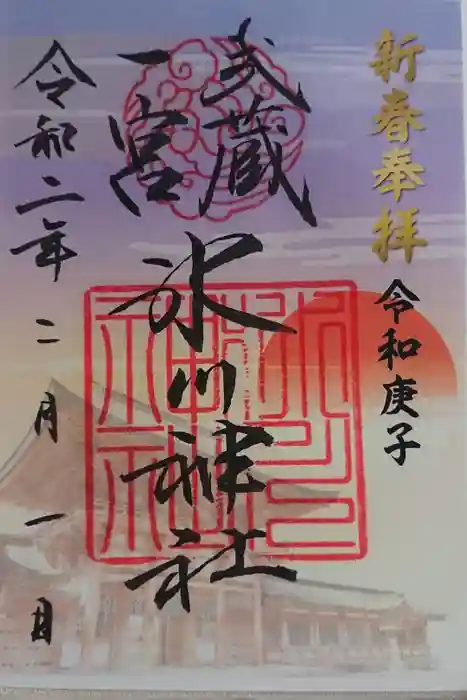 新春奉拝
令和庚子
武蔵
一宮
氷川神社
令和二年
二月一日